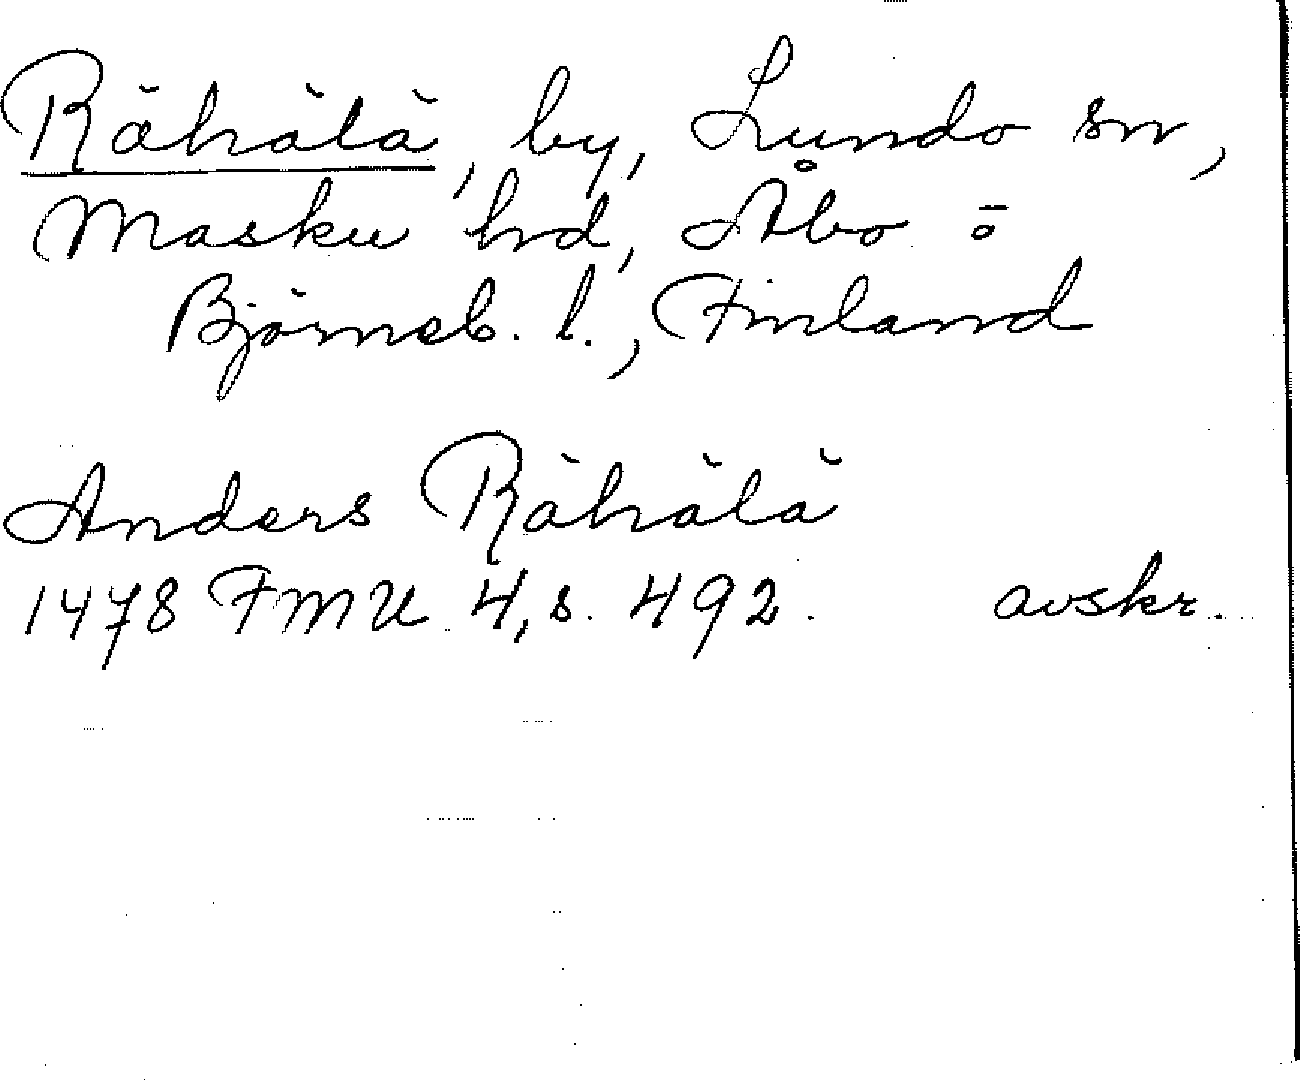 Rähälä, by, Lundo sn,
Masku hd, Åbo o
Björneb. l., Finland
Anders Rähälä
1478 FMU 4, s. 492. avskr.